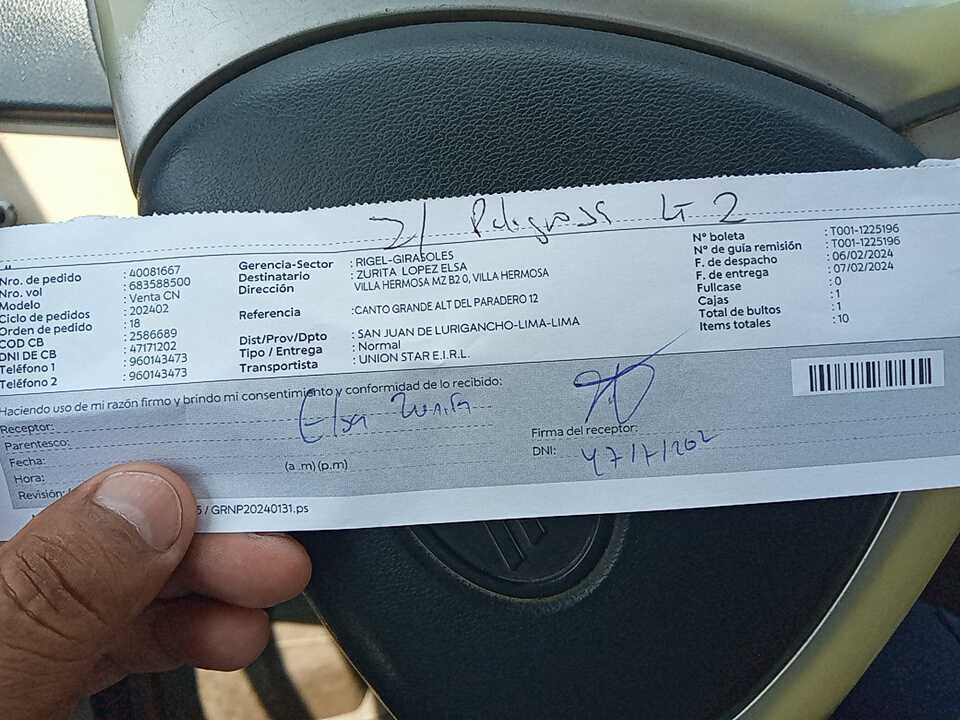 2/ Peligrosa LT 2
Nro. de pedido : 40081667
Nro. vol : 683588500
Modelo : Venta CN
Ciclo de pedidos : 202402
Orden de pedido : 18
COD CB : 2586689
DNI DE CB : 47171202
Teléfono 1 : 960143473
Teléfono 2 : 960143473
Gerencia-Sector : RIGEL-GIRASOLES
Destinatario : ZURITA LOPEZ ELSA
Dirección VILLA HERMOSA MZ B2 0, VILLA HERMOSA
Referencia :CANTO GRANDE ALT DEL PARADERO 12
Dist/Prov/Dpto : SAN JUAN DE LURIGANCHO-LIMA-LIMA
Tipo / Entrega : Normal
Transportista : UNION STAR E.I.R.L.
N° boleta : T001-1225196
N° de guía remisión : T001-1225196
F. de despacho : 06/02/2024
F. de entrega : 07/02/2024
Fullcase : 0
Cajas : 1
Total de bultos : 1
Items totales : 10
Haciendo uso de mi razón firmo y brindo mi consentimiento y conformidad de lo recibido:
Receptor: Elsa Zurita
Parentesco:
Fecha:
Hora: (a .m) (p.m)
Revisión:
5 / GRNP20240131.ps
Firma del receptor:
DNI: 47171202